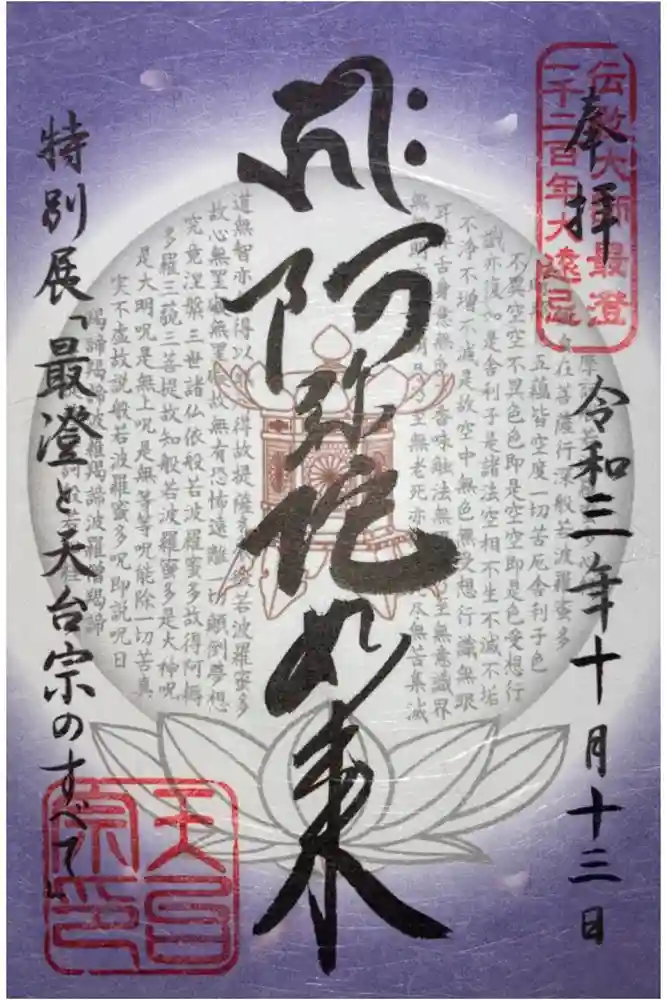 伝教大師最澄
一千二百年大遠忌
奉拝
令和三年十月十三日
阿弥陀如来
在菩薩行深般若波羅蜜多
五蘊皆空度一切苦厄舎利子色
不異空空不異色色即是空空即是色受想行
識亦復如是舎利子是諸法空相不生不滅不垢
不浄不増不減是故空中無色無受想行識無眼
耳鼻舌身意無色香味触法無至無意識界
無無明亦至無老死亦尽無苦集滅
道無智亦得以得故提薩般若波羅蜜多
故心無罣無罣故無有恐怖遠離一切顛倒夢想
究竟涅槃三世諸仏依般若波羅蜜多故得阿耨
多羅三藐三菩提故知般若波羅蜜多是大神呪
是大明呪是無上呪是無等等呪能除一切苦真
実不虚故説般若波羅蜜多呪即説呪曰
羯諦羯諦波羅羯諦波羅僧羯諦
特別展「最澄と天台宗のすべて」
天台宗印